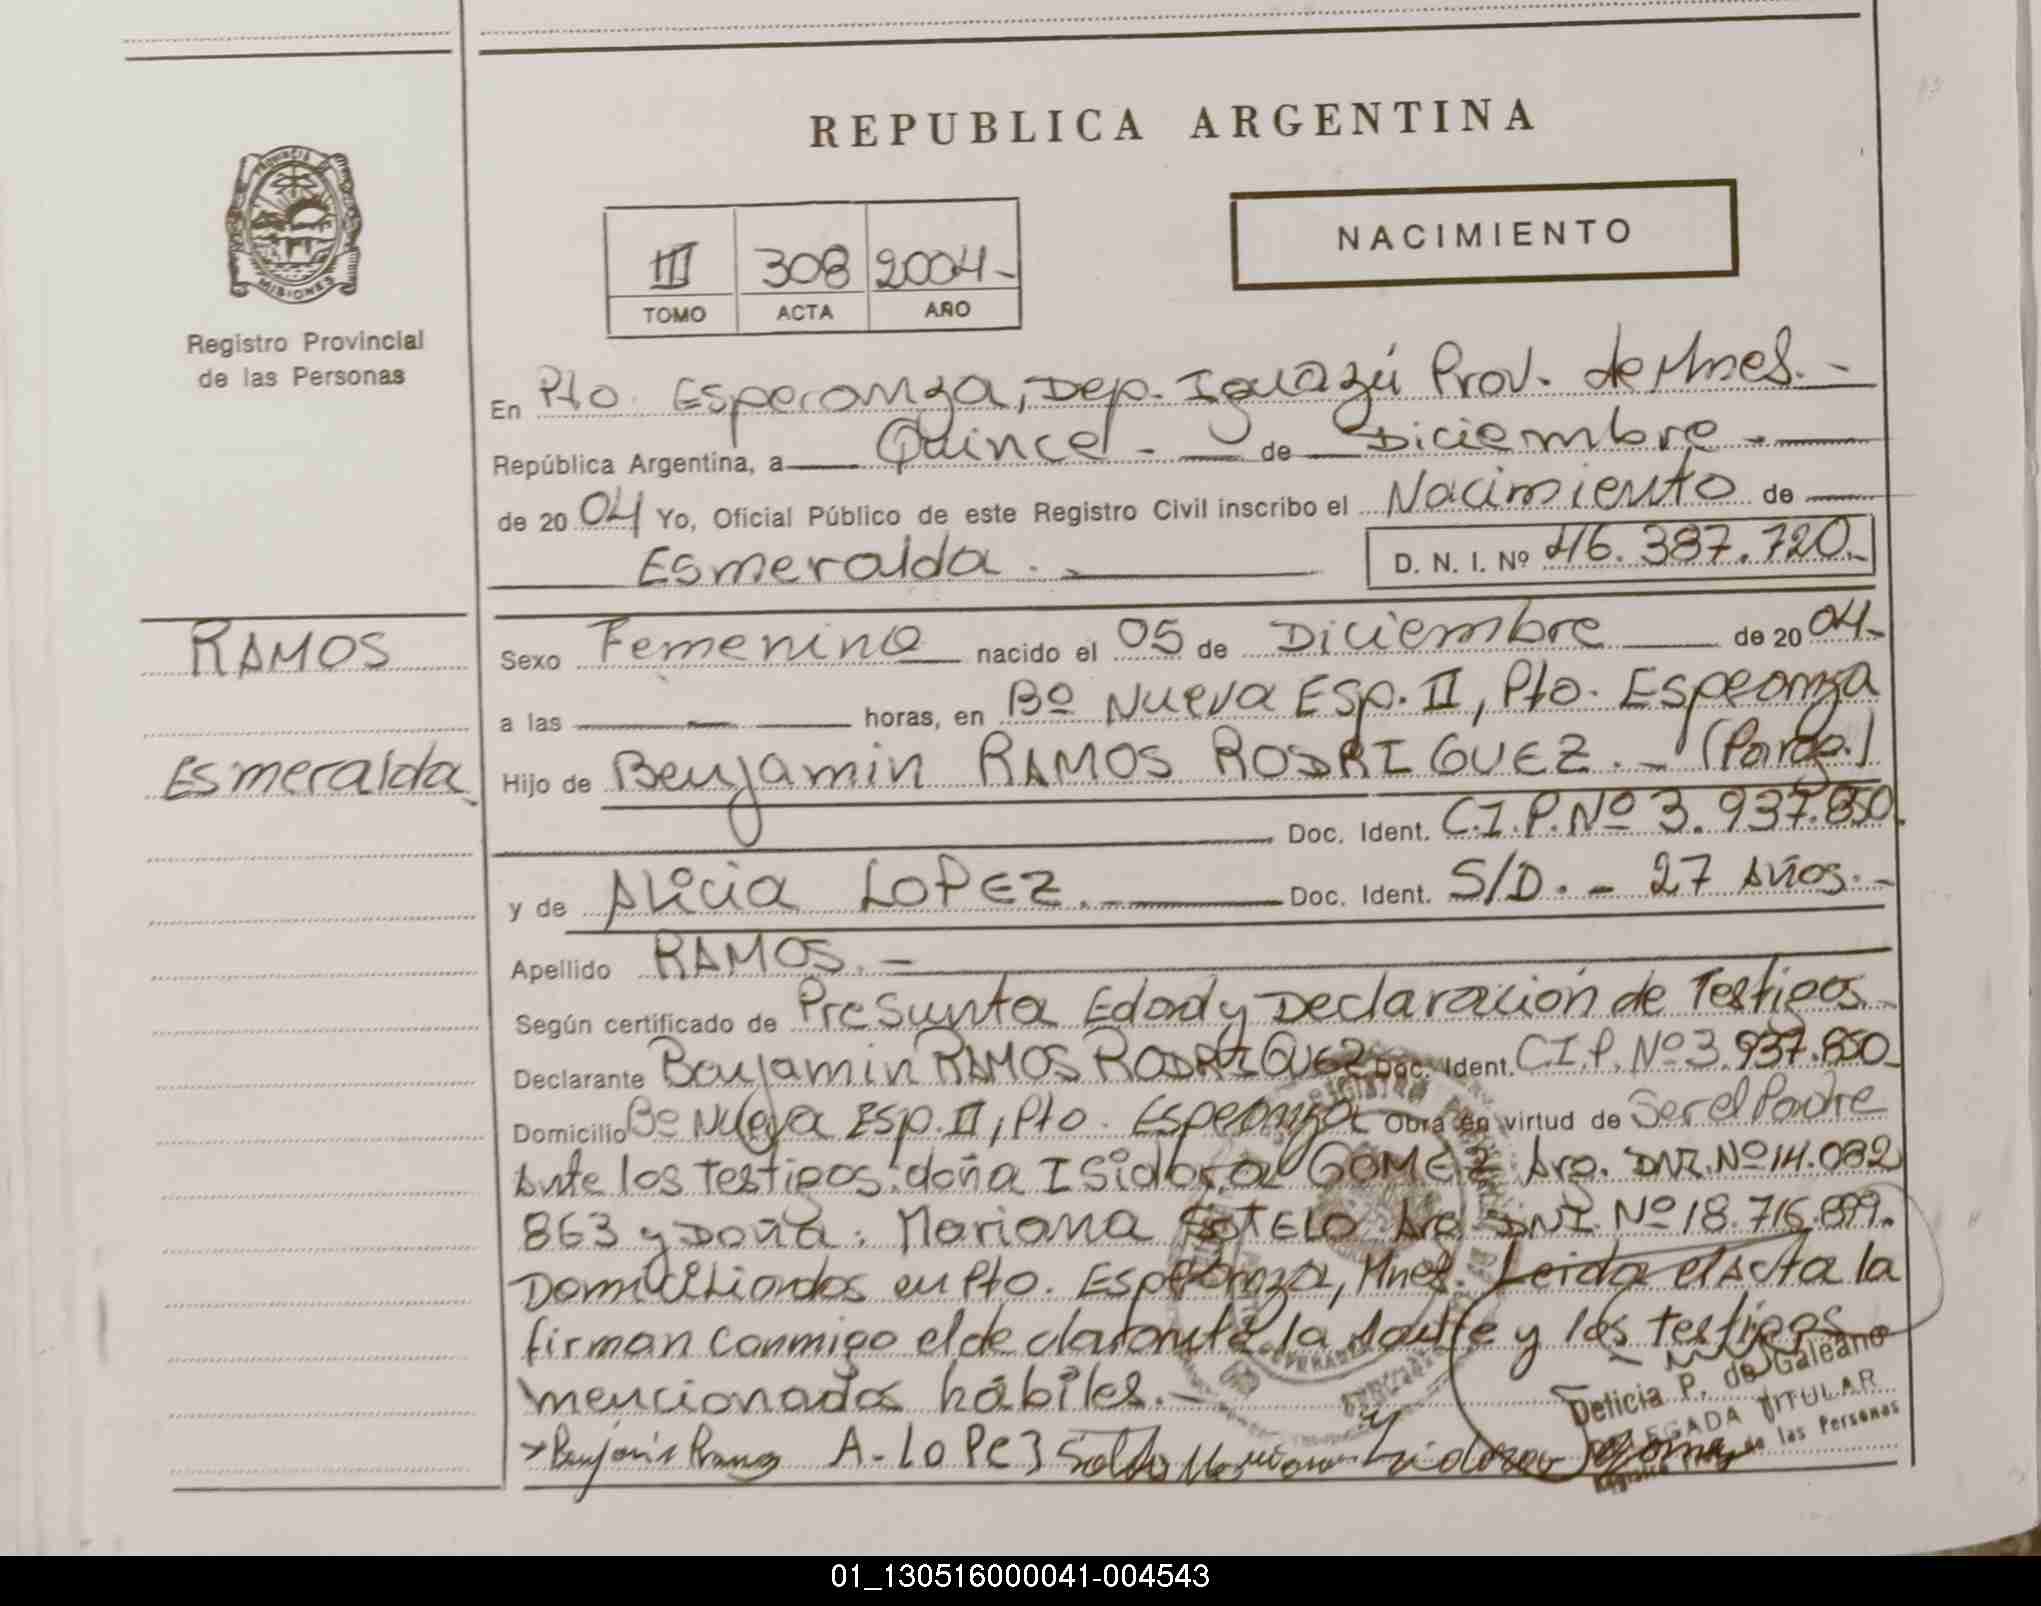 REPUBLICA ARGENTINA
PROVINCIA DE
MISIONES
Registro Provincial
de las Personas
NACIMIENTO
III 308 2004-
TOMO ACTA AÑO
En Pto. Esperanza, Dep. Iguazú Prov. de Mnes. -
República Argentina, a Quince - de Diciembre -
de 20 04 Yo, Oficial Público de este Registro Civil inscribo el Nacimiento de
Esmeralda. - D. N. I. Nº 46.387.720.-
RAMOS
Esmeralda
Sexo Femenino nacido el 05 de Diciembre de 20 04.-
a las - horas, en Bº Nueva Esp. II, Pto. Espeanza
Hijo de Benjamin RAMOS RODRIGUEZ. - (Parag.)
Doc. Ident. C.I.P. Nº 3.937.850.
y de Alicia LOPEZ. - Doc. Ident. S/D. - 27 Años. -
Apellido RAMOS. -
Según certificado de Presunta Edad y Declaración de Testigos
Declarante Benjamin RAMOS RODRIGUEZ Doc. Ident. C.I.P. Nº 3.937.850-
Domicilio Bº Nueva Esp. II, Pto. Espeanza Obra en virtud de Ser el Padre
Ante los testigos: doña Isidora GOMEZ Arg. DNI. Nº 14.082
863 y Doña: Mariana SOTELO Arg. DNI. Nº 18.716.899.
Domiciliados en Pto. Esperanza, Mnes. Leida el Acta la
firman conmigo el declarante, la y los testigos
mencionados hábiles. -
Delicia P. de Galeano
DELEGADA TITULAR
Registro Prov. de las Personas
Benjamin Ramos A. LOPEZ Sotelo Mariana Isidora Gomez
01_130516000041-004543